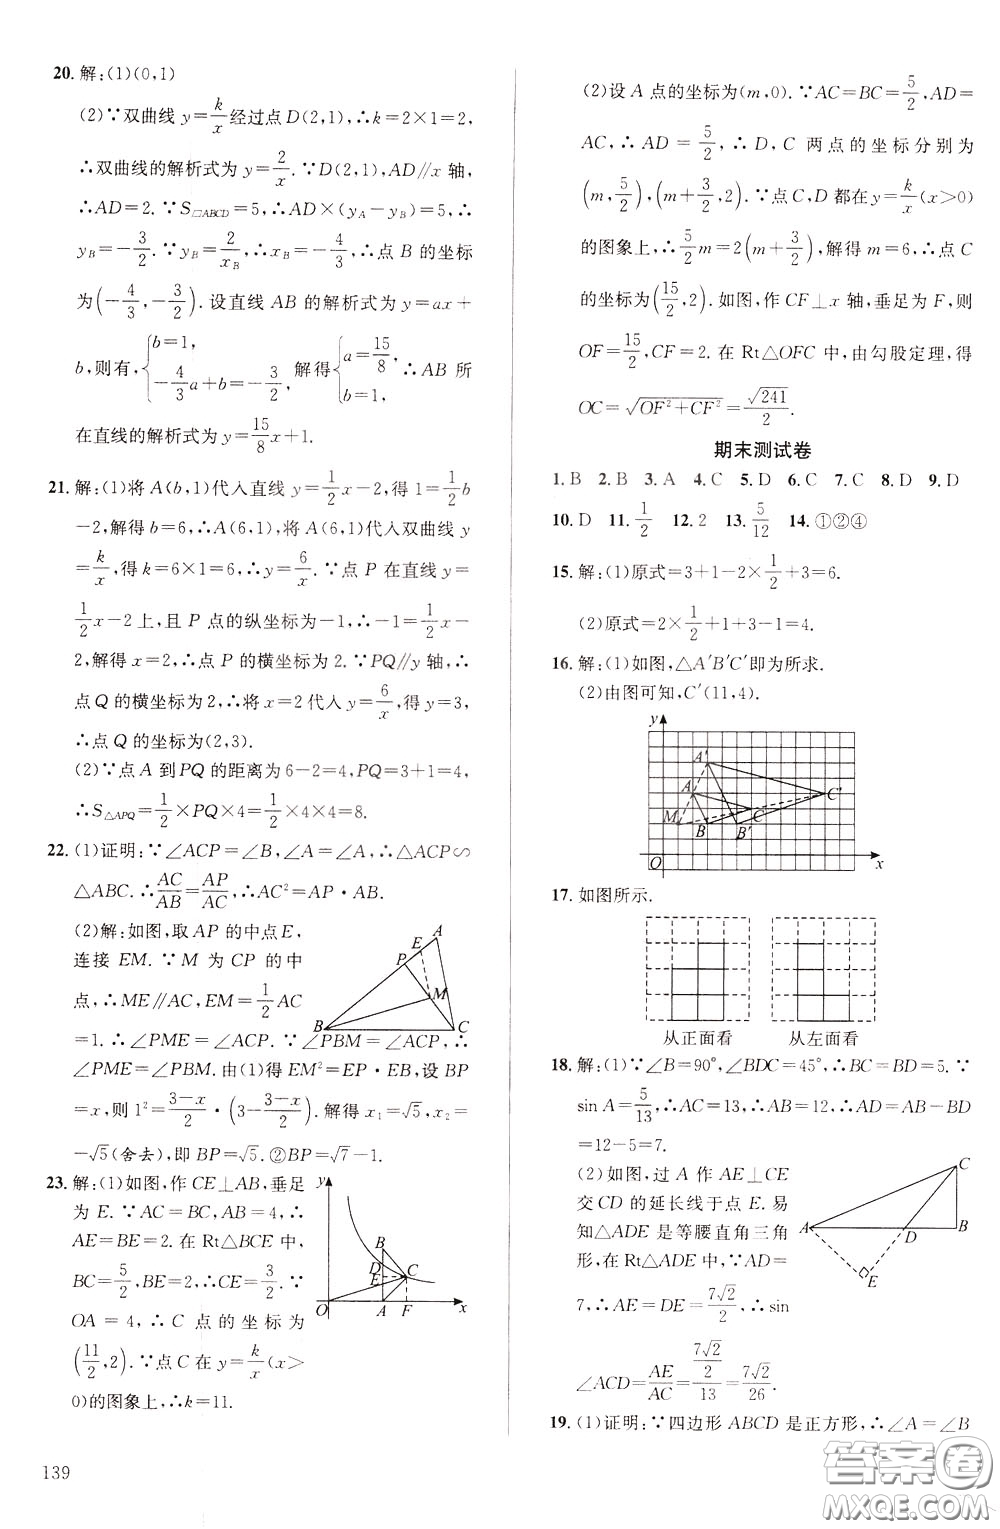 20. 解:(1)(0,1)
(2)∵双曲线 y=k/x 经过点 D(2,1),∴k=2×1=2,
∴双曲线的解析式为 y=2/x. ∵D(2,1),AD∥x 轴,
∴AD=2. ∵S▱ABCD=5,∴AD×(yA-yB)=5,∴
yB=-3/2. ∵yB=2/xB,∴xB=-4/3,∴点 B 的坐标
为(-4/3,-3/2). 设直线 AB 的解析式为 y=ax+
b,则有,{b=1, -4/3a+b=-3/2, 解得{a=15/8, b=1, ∴AB 所
在直线的解析式为 y=15/8x+1.
21. 解:(1)将 A(b,1)代入直线 y=1/2x-2,得 1=1/2b
-2,解得 b=6,∴A(6,1),将 A(6,1)代入双曲线 y
=k/x,得 k=6×1=6,∴y=6/x. ∵点 P 在直线 y=
1/2x-2 上,且 P 点的纵坐标为-1,∴-1=1/2x-
2,解得 x=2,∴点 P 的横坐标为 2. ∵PQ∥y 轴,∴
点 Q 的横坐标为 2,∴将 x=2 代入 y=6/x,得 y=3,
∴点 Q 的坐标为(2,3).
(2)∵点 A 到 PQ 的距离为 6-2=4,PQ=3+1=4,
∴S△APQ=1/2×PQ×4=1/2×4×4=8.
22. (1)证明:∵∠ACP=∠B,∠A=∠A,∴△ACP∽
△ABC. ∴AC/AB=AP/AC,∴AC²=AP·AB.
(2)解:如图,取 AP 的中点 E,
连接 EM. ∵M 为 CP 的中
点,∴ME∥AC,EM=1/2AC
=1. ∴∠PME=∠ACP. ∵∠PBM=∠ACP,∴
∠PBM=∠PME. 由(1)得 EM²=EP·EB,设 BP
=x,则 1²=3-x/2·(3-3-x/2). 解得 x₁=√5,x₂=
-√5(舍去),即 BP=√5. ②BP=√7-1.
A
E
P
M
B
C
23. 解:(1)如图,作 CE⊥AB,垂足
为 E. ∵AC=BC,AB=4,∴
AE=BE=2. 在 Rt△BCE 中,
BC=5/2,BE=2,∴CE=3/2. ∵
OA=4,∴C 点的坐标为
(11/2,2). ∵点 C 在 y=k/x(x>
0)的图象上,∴k=11.
y
B
D
E
C
O
A
F
x
139
(2)设 A 点的坐标为(m,0). ∵AC=BC=5/2,AD=
AC,∴AD=5/2,∴D,C 两点的坐标分别为
(m,5/2),(m+3/2,2). ∵点 C,D 都在 y=k/x(x>0)
的图象上,∴5/2m=2(m+3/2),解得 m=6,∴点 C
的坐标为(15/2,2). 如图,作 CF⊥x 轴,垂足为 F,则
OF=15/2,CF=2. 在 Rt△OFC 中,由勾股定理,得
OC=√OF²+CF²=√241/2.
期末测试卷
1. B 2. B 3. A 4. C 5. D 6. C 7. C 8. D 9. D
10. D 11. 1/2 12. 2 13. 5/12 14. ①②④
15. 解:(1)原式=3+1-2×1/2+3=6.
(2)原式=2×1/2+1+3-1=4.
16. 解:(1)如图,△A′B′C′即为所求.
(2)由图可知,C′(11,4).
y
A′
A
C′
M
C
B
B′
O
x
17. 如图所示.
从正面看 从左面看
18. 解:(1)∵∠B=90°,∠BDC=45°,∴BC=BD=5. ∵
sin A=5/13,∴AC=13,∴AB=12,∴AD=AB-BD
=12-5=7.
(2)如图,过 A 作 AE⊥CE
交 CD 的延长线于点 E. 易
知△ADE 是等腰直角三角
形,在 Rt△ADE 中,∵AD=
7,∴AE=DE=7√2/2,∴sin
∠ACD=AE/AC=7√2/2/13=7√2/26.
C
A
D
B
E
19. (1)证明:∵四边形 ABCD 是正方形,∴∠A=∠B
答案圈
MXQE.COM